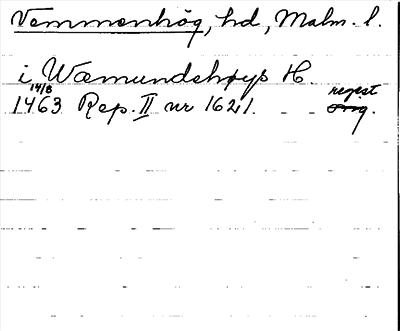 Vemmenhög, hd, Malm. l.
i Wæmundshøys H.
14/8 regist
1463 Rep. II nr 1621. orig.